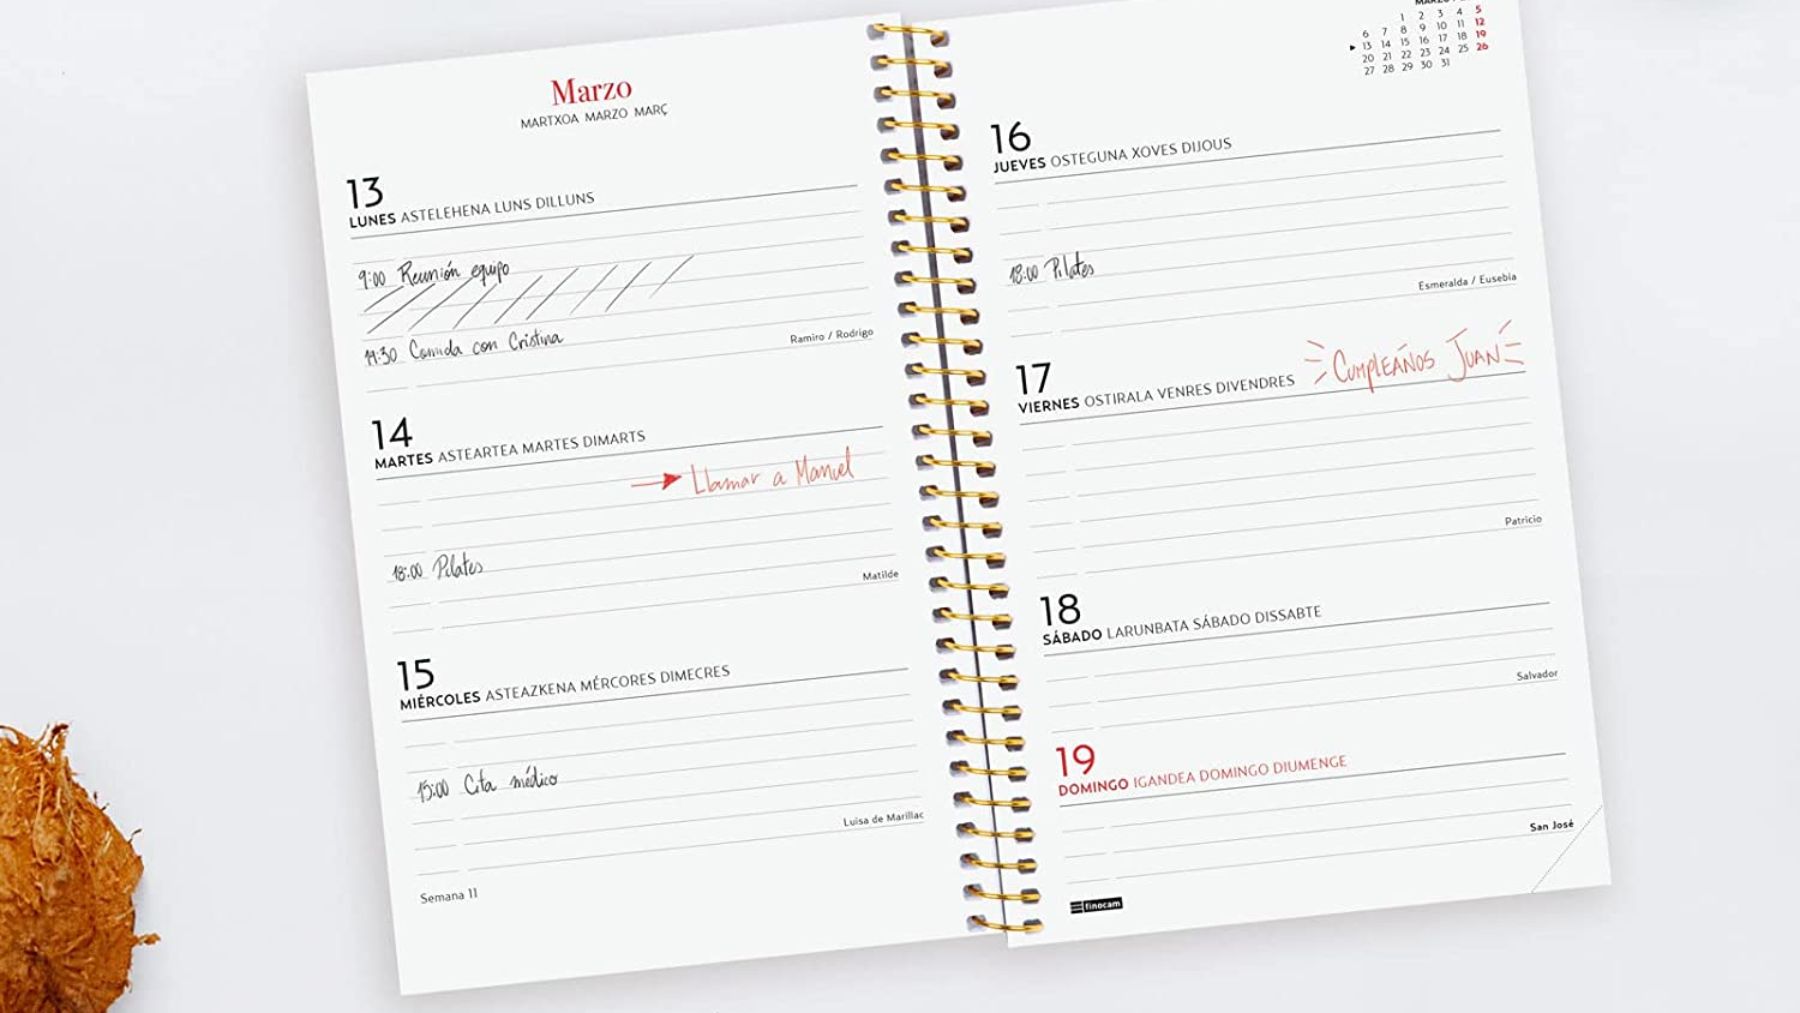 Marzo
MARTXOA MARZO MARÇ
13
LUNES ASTELEHENA LUNS DILLUNS
9:00 Reunión equipo
Comida con Cristina
Ramiro / Rodrigo
14
MARTES ASTEARTEA MARTES DIMARTS
Llamar a Manuel
18:00 Pilates
Matilde
15
MIÉRCOLES ASTEAZKENA MÉRCORES DIMECRES
15:00 Cita médico
Luisa de Marillac
Semana 11
1 2 3 4 5
6 7 8 9 10 11 12
13 14 15 16 17 18 19
20 21 22 23 24 25 26
27 28 29 30 31
16
JUEVES OSTEGUNA XOVES DIJOUS
18:00 Pilates
Esmeralda / Eusebia
17
VIERNES OSTIRALA VENRES DIVENDRES
CUMPLEAÑOS JUAN
Patricio
18
SÁBADO LARUNBATA SÁBADO DISSABTE
Salvador
19
DOMINGO IGANDEA DOMINGO DIUMENGE
San José
finocam